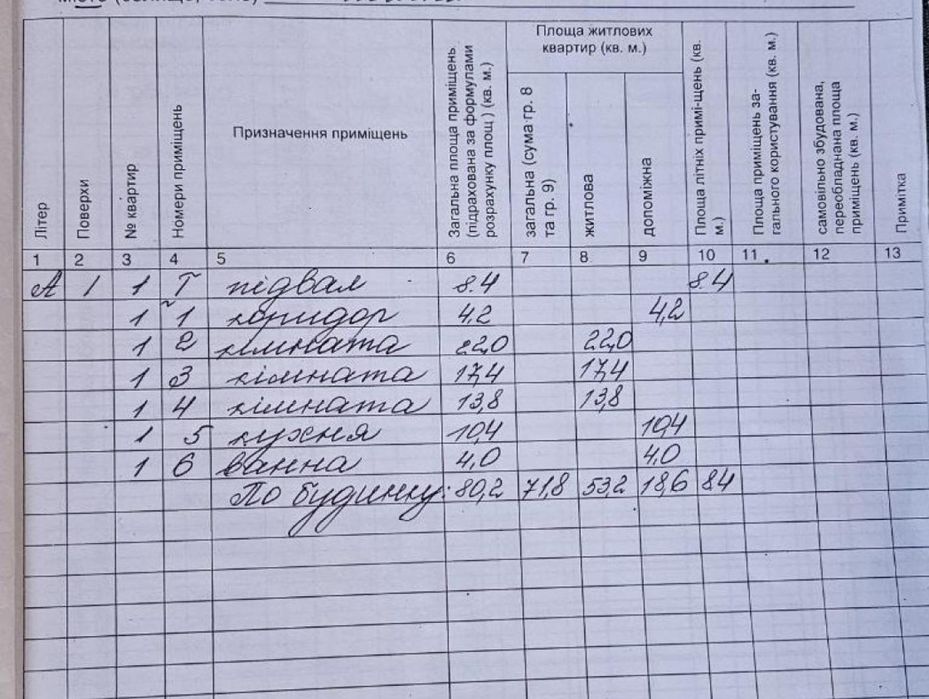 Літер
Поверхи
№ квартир
Номери приміщень
Призначення приміщень
Загальна площа приміщень (підрахована за формулами розрахунку площ) (кв. м.)
Площа житлових квартир (кв. м.)
загальна (сума гр. 8 та гр. 9)
житлова
допоміжна
Площа літніх примі-щень (кв. м.)
Площа приміщень за-гального користування (кв. м.)
самовільно збудована, переобладнана площа приміщень (кв. м.)
Примітка
1 2 3 4 5 6 7 8 9 10 11 12 13
А 1 1 Т підвал 8.4 8.4
1 1 коридор 4,2 4,2
1 2 кімната 22,0 22,0
1 3 кімната 17,4 17,4
1 4 кімната 13,8 13,8
1 5 кухня 10,4 10,4
1 6 ванна 4,0 4,0
По будинку: 80,2 71,8 53,2 18,6 84